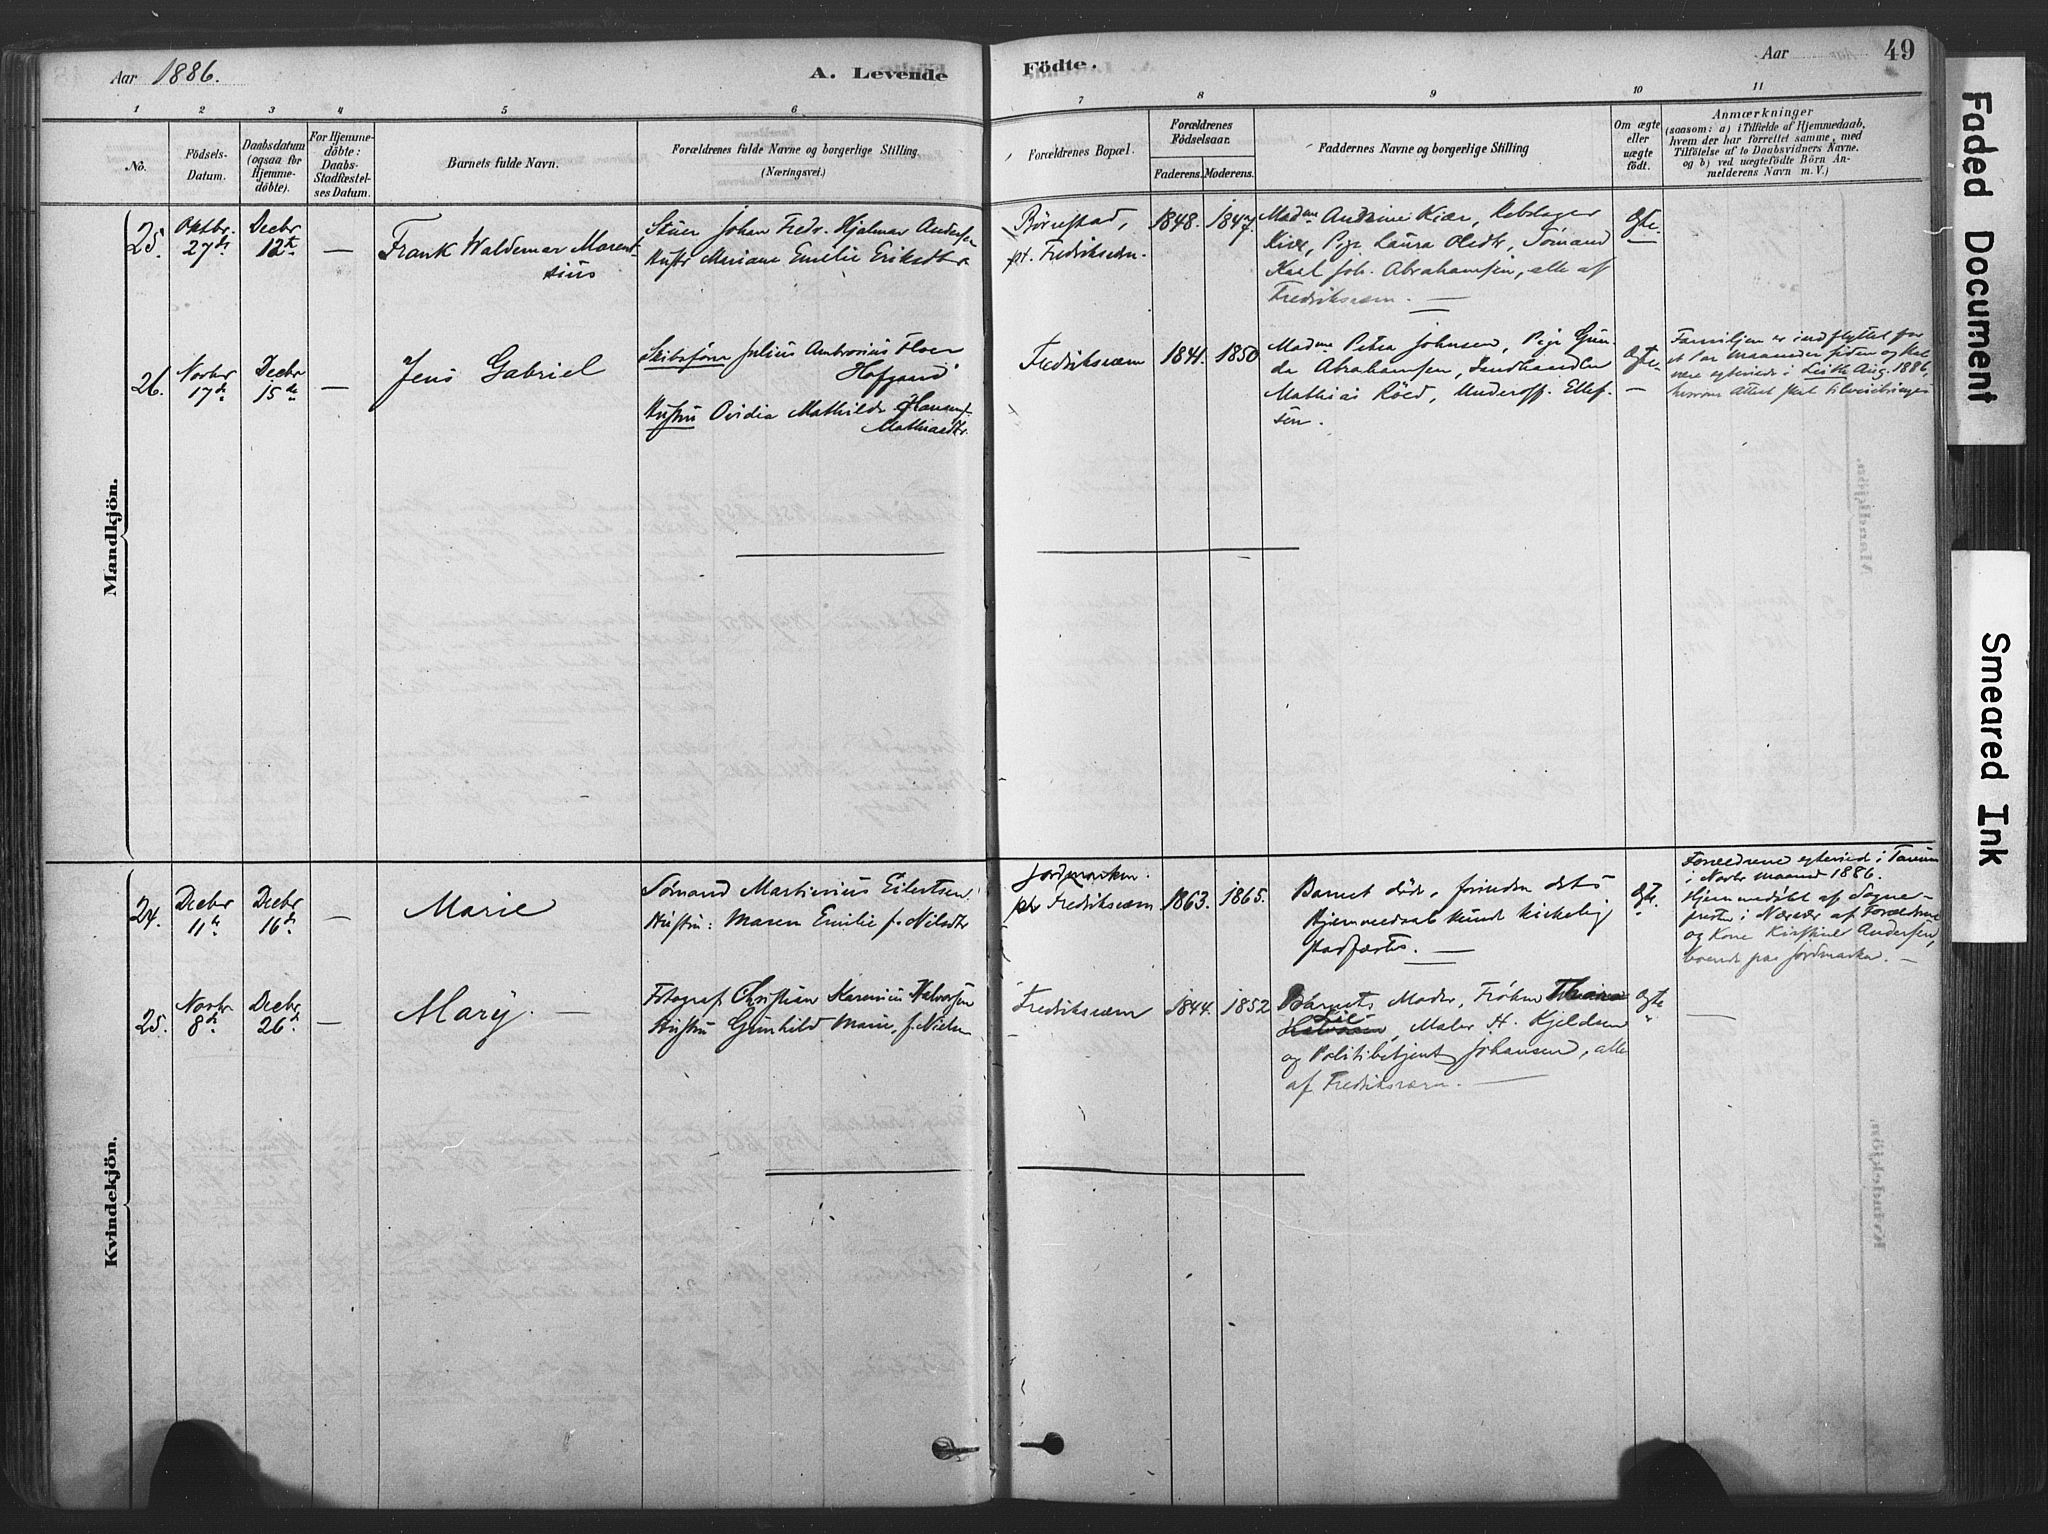 Aar 1886.
A. Levende
Födte.
Aar
49
1 2 3 4 5 6 7 8 9 10 11
No.
Födsels-
Datum.
Daabsdatum
(ogsaa for
Hjemme-
döbte).
For Hjemme-
döbte:
Daabs-
Stadfæstel-
ses Datum.
Barnets fulde Navn.
Forældrenes fulde Navne og borgerlige Stilling
(Næringsvei.)
Forældrenes Bopæl.
Forældrenes
Födselsaar.
Faderens. Moderens.
Faddernes Navne og borgerlige Stilling
Om ægte
eller
uægte
födt.
Anmærkninger
(saasom: a) i Tilfælde af Hjemmedaab,
hvem der har forrettet samme, med
Tilföielse af to Daabsvidners Navne.
og b) ved uægtefödte Börn An-
melderens Navn m. V.)
Mandkjön.
25.
Oktbr.
27de
Decbr
12te
—
Frank Waldemar Marent-
sius
Stuer Johan Fredr. Hjalmar Andersen
Hustr Mariane Emilie Eriksdtr
pt. Fredriksværn.
1848. 1847.
Madme Andrine Kiær, Rebslager
Kiær, Pige Laura Olsdtr, Sømand
Karl Joh. Abrahamsen, alle af
Fredriksværn. —
Ægte.
26.
Novbr
17de
Decbr
15de
—
Jens Gabriel
Skibsfører Julius Ambrosius Floer
Hofgaard
Hustru Ovidia Mathilde Hansen
Mathiasdtr.
Fredriksværn
1841. 1850
Madme Petra Johnsen, Pige Gun-
da Abrahamsen, Landhandler
Mathias Röed, Underoff. Ellef-
sen.
Ægte.
—
Familjen er indflyttet for
et Par Maaneder siden og skal
være egteviede i Leith Aug. 1886,
hvorom Attest skal tilveiebringes
Kvindekjön.
24.
Decbr
11te
Decbr
16de
—
Marie
Sømand Martinius Eilertsen
Hustru: Maren Emilie f. Nilsdtr
Jordmarken.
Fredriksværn
1863. 1865.
Barnet døde, forinden dets
Hjemmedaab kunde kirkelig
stadfæstes. —
Ægte.
Forældrene egteviede i Tanum
i Novbr Maaned 1886.
Hjemmedöbt af Sogne-
prest i Nærvær af Forældrene
og Kone Kirstine Andersen,
boende paa Jordmarken. —
25.
Novbr
8de
Decbr
26de
—
Mary. —
Fotograf Christian Karenius Halvorsen
Hustru Gunhild Marie, f. Nielsen
Fredriksværn
1844. 1852
Barnets Moder, Frøken
Maler H. Kjeldsen
og Politibetjent Johansen, alle
af Fredriksværn. —
Ægte
—
Faded Document
Smeared Ink